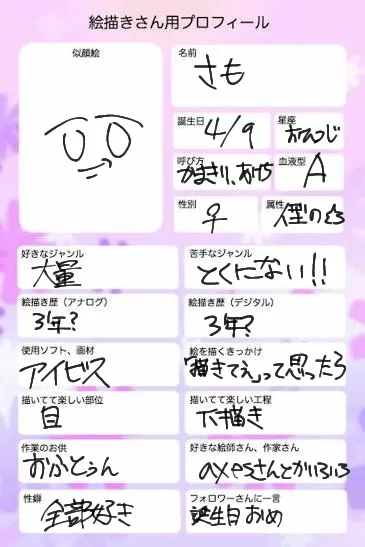 絵描きさん用プロフィール
似顔絵
名前
さも
誕生日
4/9
星座
おひつじ
呼び方
かまきり、あげち
血液型
A
性別
♀
属性
好きなジャンル
大量
苦手なジャンル
とくにない!!
絵描き歴(アナログ)
3年?
絵描き歴(デジタル)
3年?
使用ソフト、画材
アイビス
絵を描くきっかけ
「描きてぇ」って思ったろ
描いてて楽しい部位
目
描いてて楽しい工程
下描き
作業のお供
おふとぅん
好きな絵師さん、作家さん
axesさんとかいろいろ
性癖
全部好き
フォロワーさんに一言
誕生日おめ